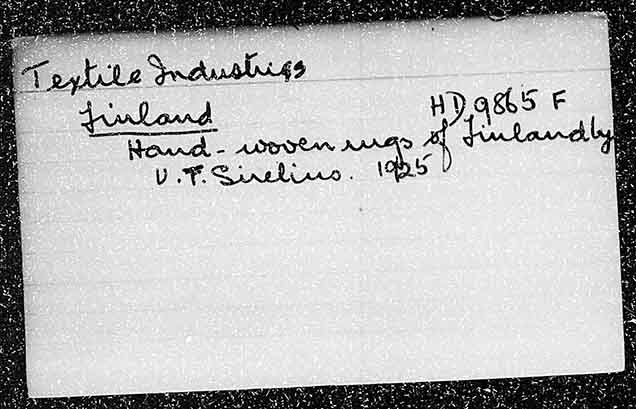 Textile Industries
Finland HD 9865 F
Hand-woven rugs of Finland by
U.T. Sirelius. 1925